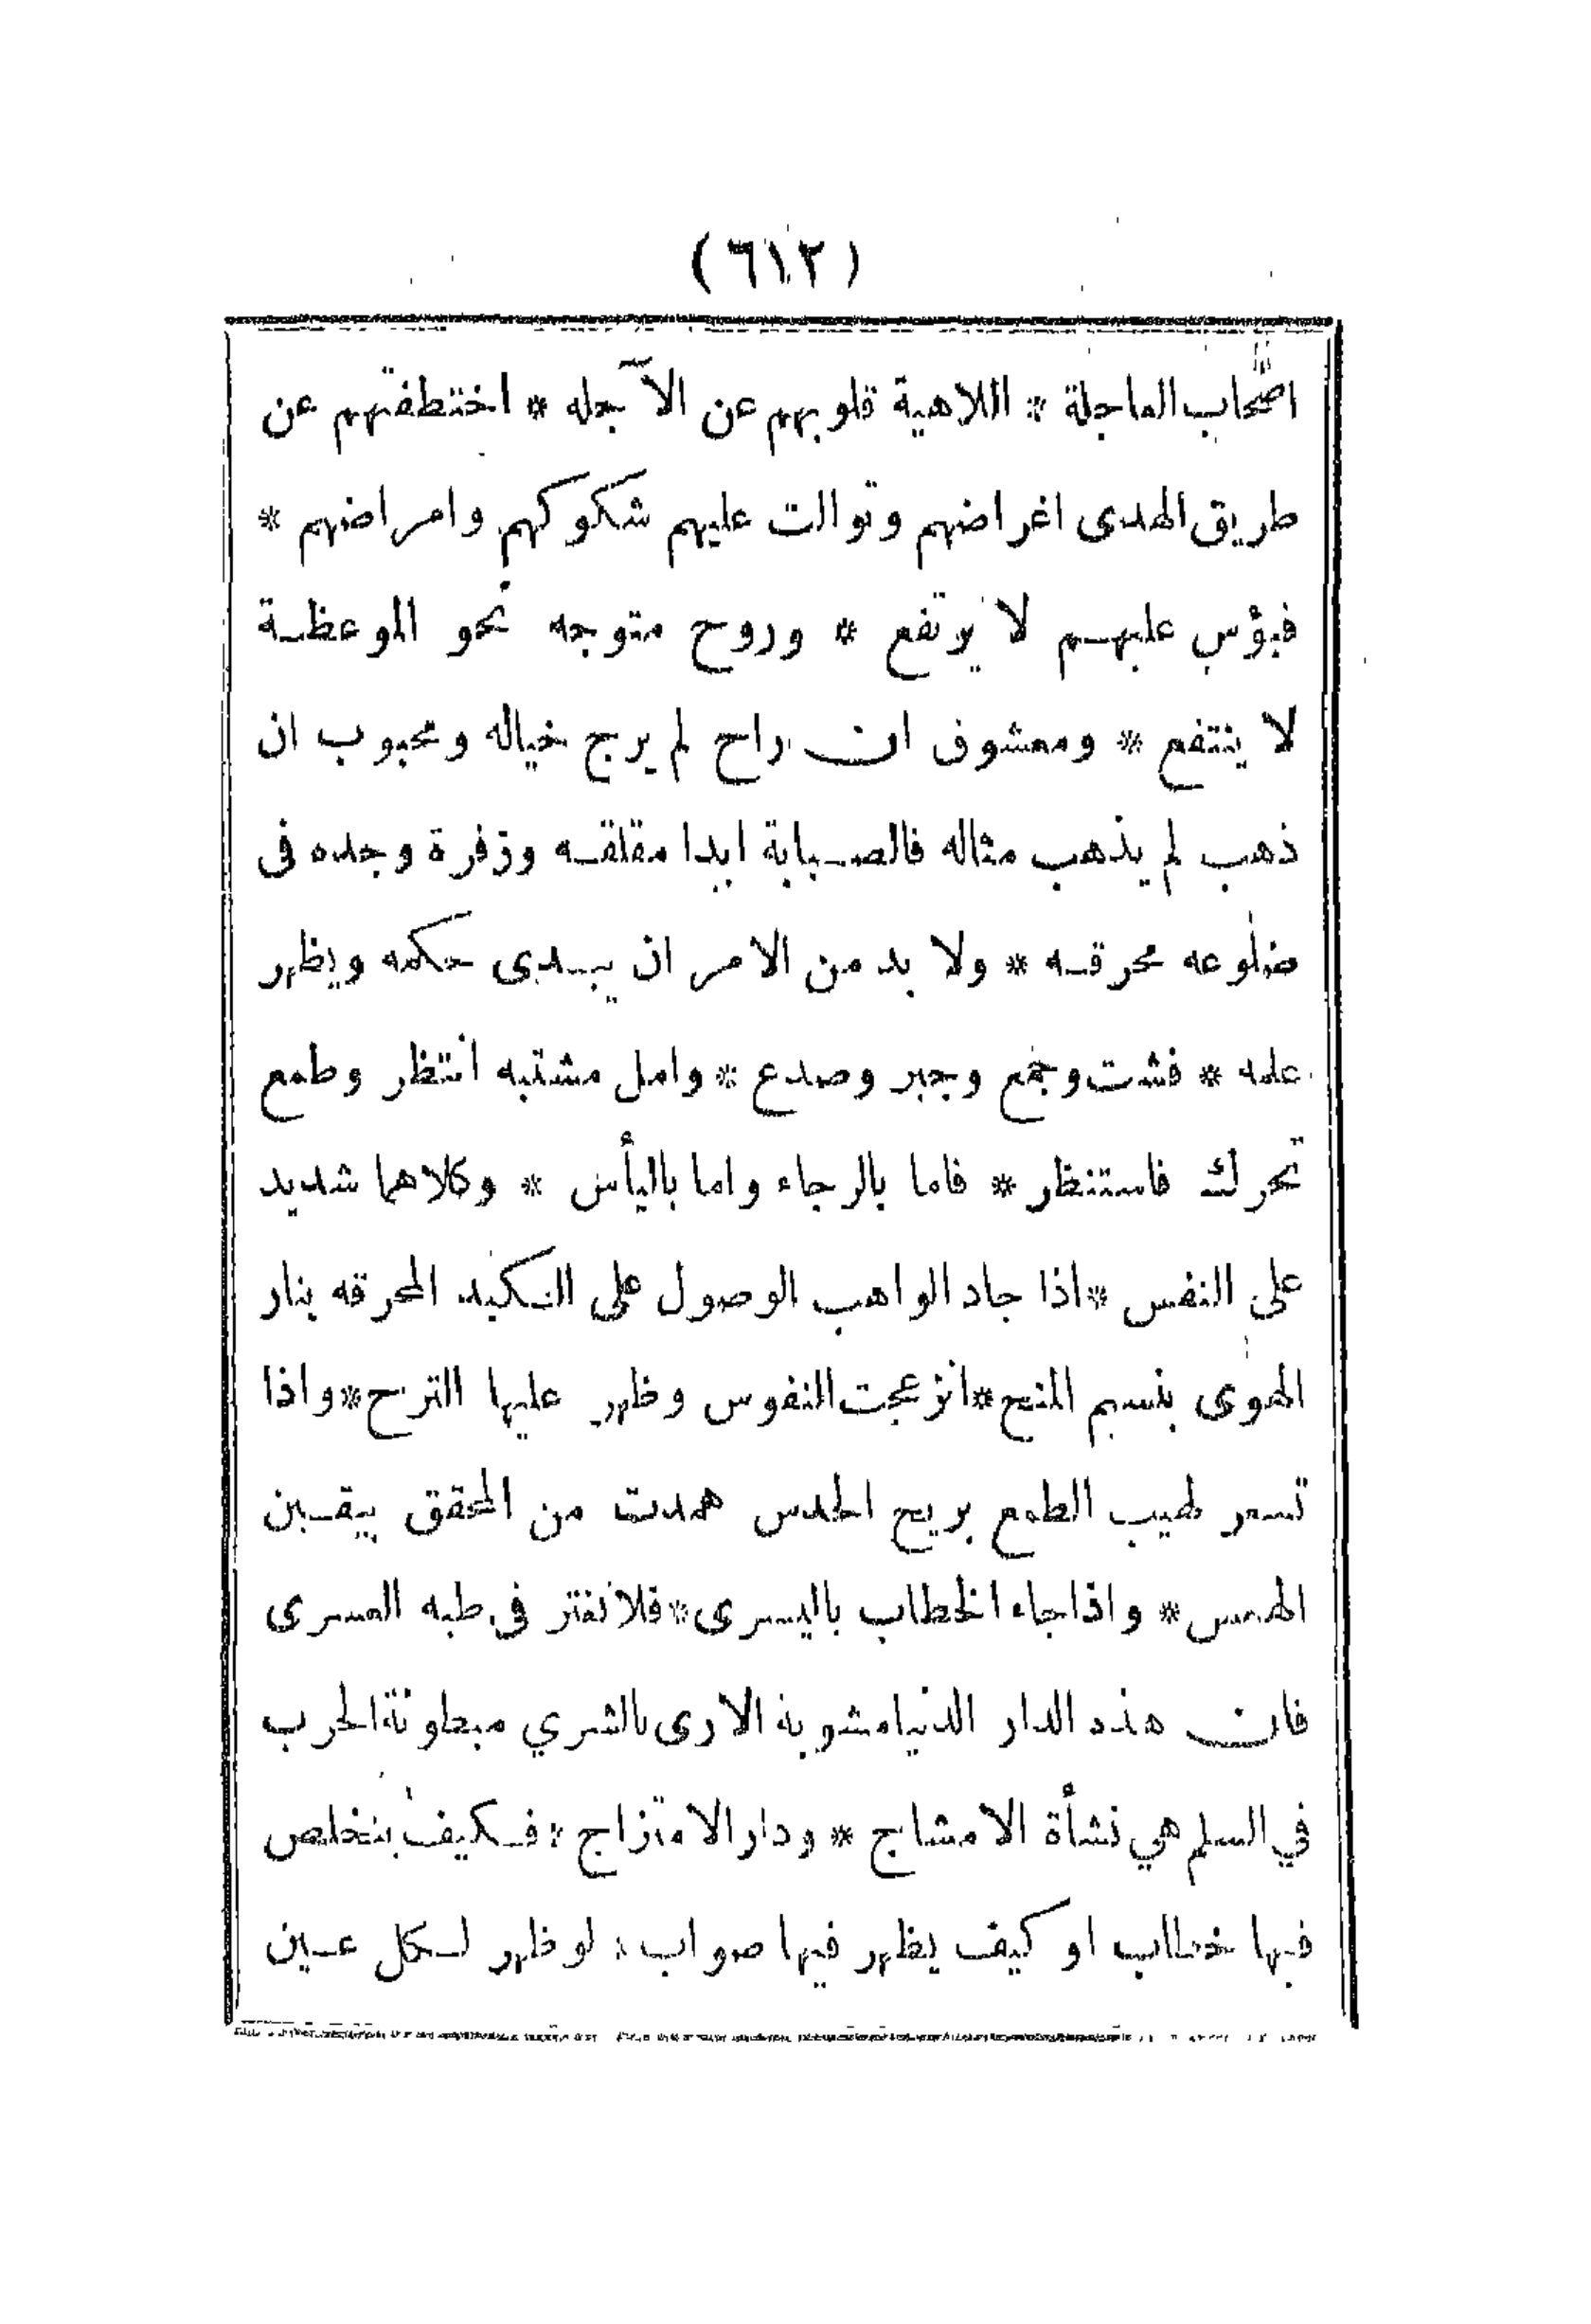 (٦١٢)
اصحاب العاجلة * اللاهية قلوبهم عن الآجله * اختطفتهم عن
طريق الهدى اغراضهم وتوالت عليهم شكوكهم وامراضهم *
فبؤس عليهم لا يرتفع * وروح متوجه نحو الموعظة
لا ينتفع * ومعشوق ان راح لم يرح خياله ومحبوب ان
ذهب لم يذهب مثاله فالصبابة ابدا مقلقه وزفرة وجده فى
ضلوعه محرقه * ولا بد من الامر ان يبدى حكمه ويظهر
علمه * فشت وجمع وجبر وصدع * وامل مشتبه انتظر وطمع
تحرك فاستنظر * فاما بالرجاء واما باليأس * وكلاهما شديد
على النفس * اذا جاد الواهب الوصول على الكبد المحرقه بنار
الهوى بنسيم المنح * انزعجت النفوس وظهر عليها الترح * واذا
تسعر لهيب الطمع بريح الحدس همدت من المحقق بيقين
الهمس * واذا جاء الخطاب باليسرى * فلا تغتر فى طيه العسرى
فان هذه الدار الدنيا مشوبة الارى بالشري مبطونة الحرب
في السلم هي نشأة الامشاج * ودار الامتزاج * فكيف يتخلص
فيها خطاب او كيف يظهر فيها صواب * لو ظهر لكل عين